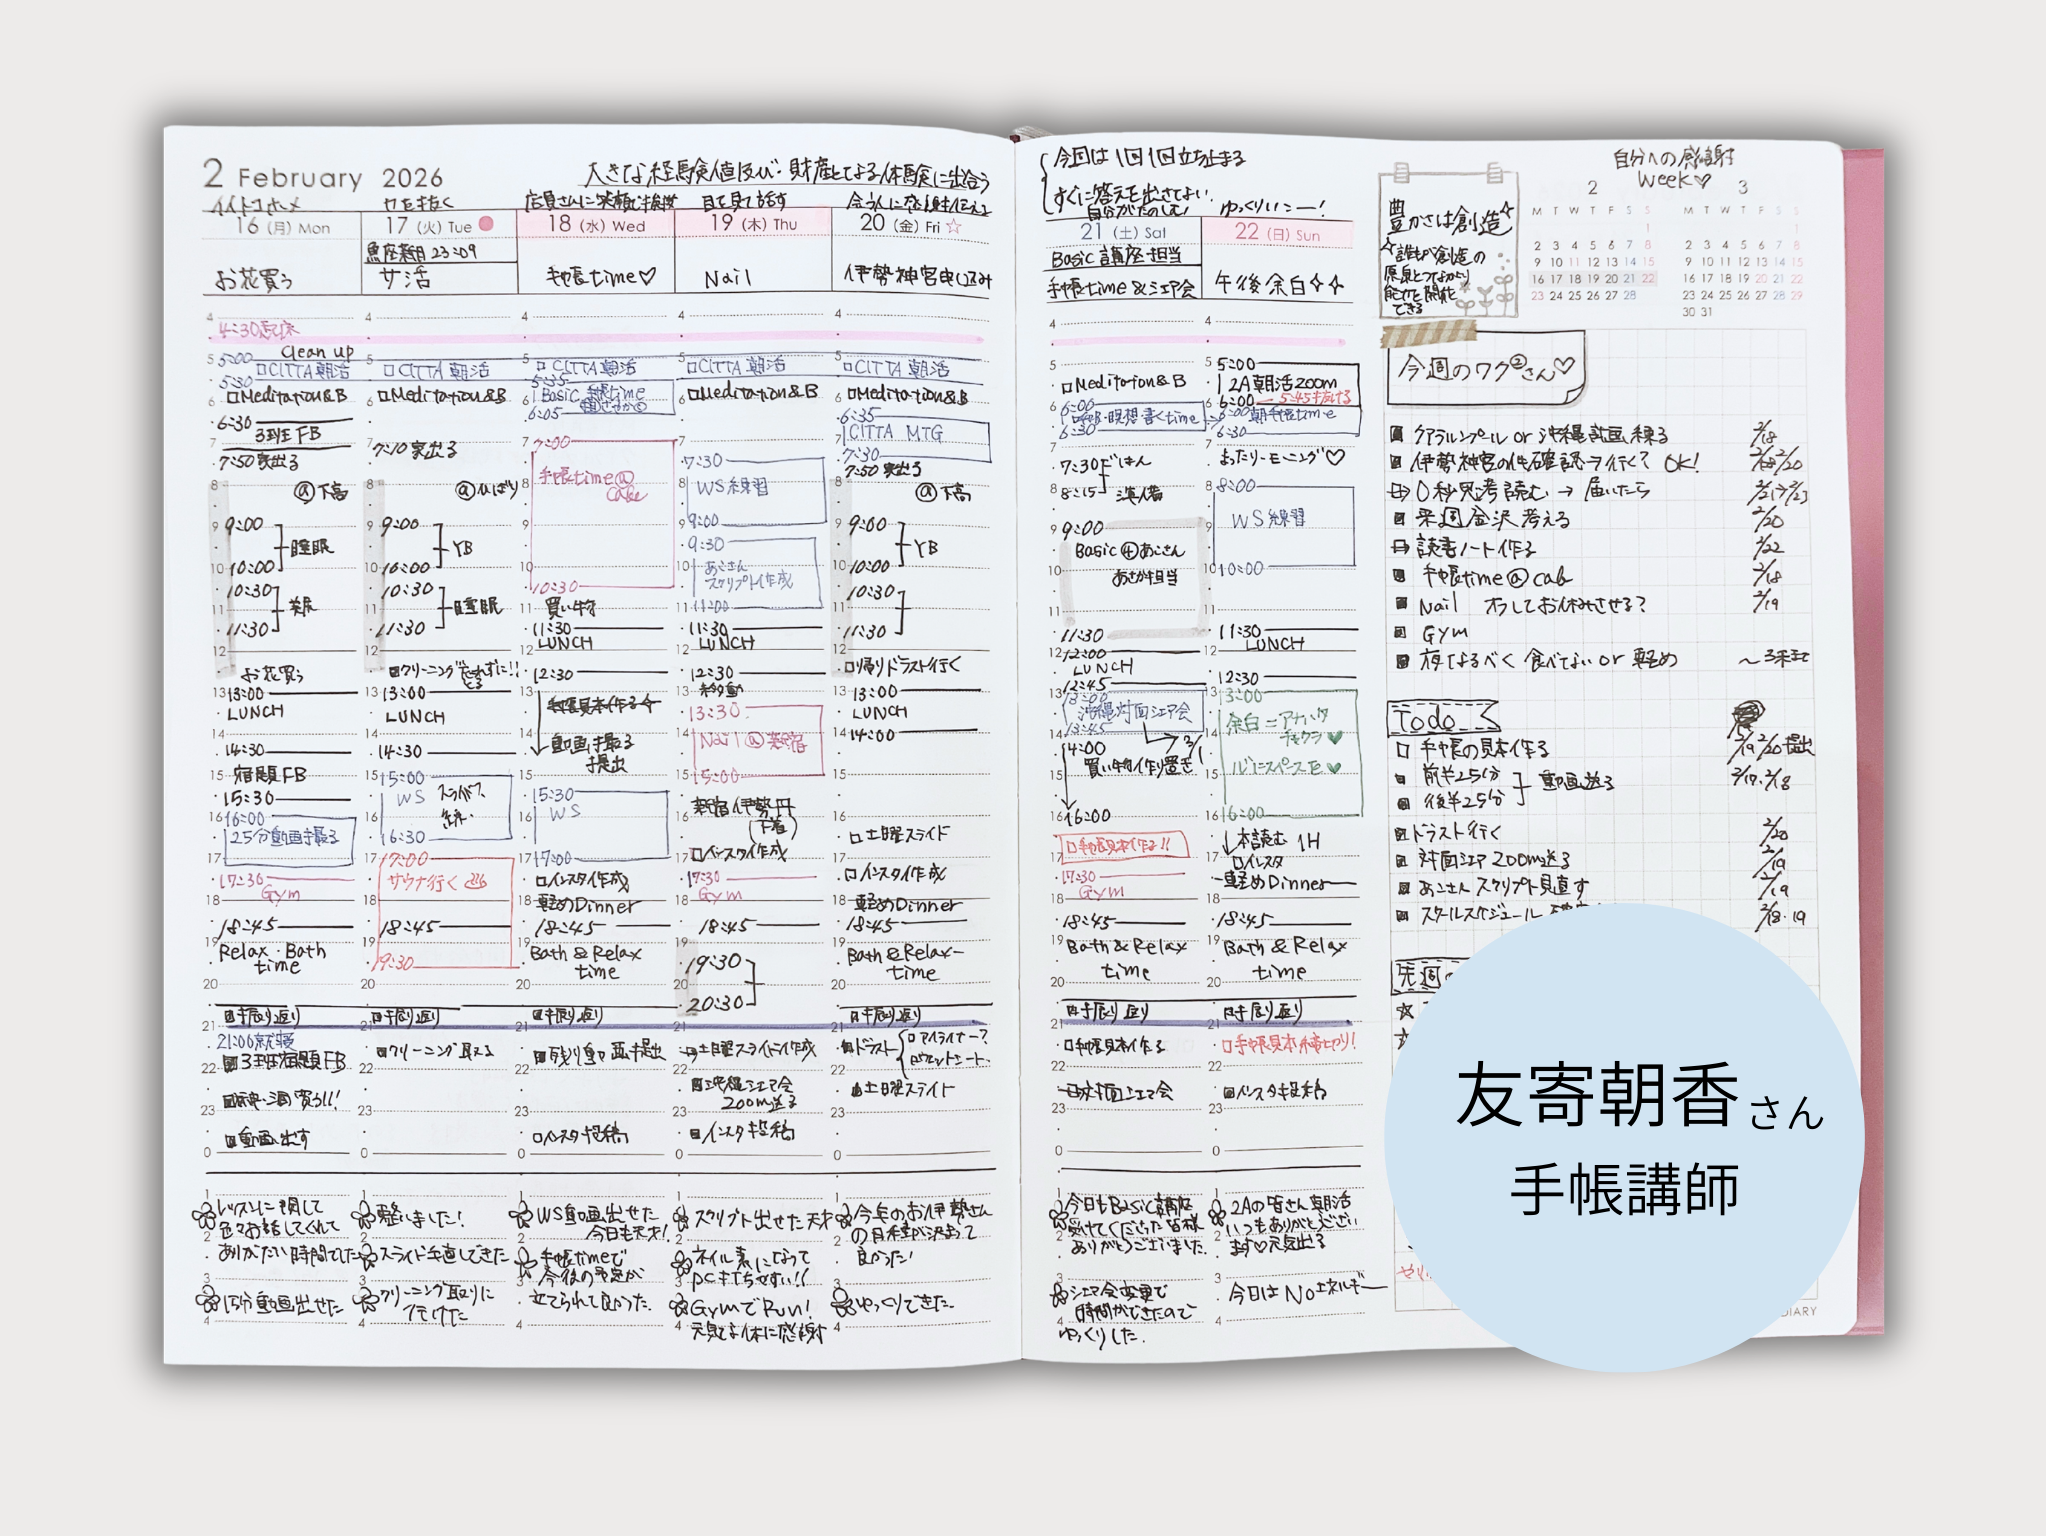 2 February 2026
大きな経験値及び財産となる体験に出合う
イイトコホメ
力を抜く
店員さんに笑顔で挨拶
目を見て話す
会う人に感謝伝える
16 (月) Mon
17 (火) Tue
18 (水) Wed
19 (木) Thu
20 (金) Fri ☆
魚座新月 23:09
お花買う
サ活
手帳time♡
Nail
伊勢神宮申し込み
4:30起床
5:00 Clean up
□CITTA 朝活
5:30
□Meditation&B
6:30
3班 FB
7:50 家出る
@下高
9:00
睡眠
10:00
10:30
11:30
お花買う
13:00
LUNCH
14:30
宿題FB
15:30
16:00
25分動画撮る
17:30
Gym
18:45
Relax・Bath
time
振り返り
21:00就寝
3班宿題FB
動画出す
レッスンに関して
色々お話してくれて
ありがたい時間でした
15分動画出せた
□CITTA 朝活
□Meditation&B
7:10 家出る
@ひばり
9:00
YB
10:00
10:30
睡眠
11:30
クリーニング忘れずに!!
とる
13:00
LUNCH
14:30
15:00
WS
16:30
17:00
サウナ行く
18:45
19:30
振り返り
クリーニング取る
整いました!
スライド手直しできた
クリーニング取りに
行けた
□CITTA 朝活
5:35
Basic 手帳time
6:05
7:00
手帳time@
cafe
10:30
買い物
11:30
LUNCH
12:30
手帳見本作る
動画撮る
提出
15:30
WS
17:00
□インスタ作成
軽めDinner
18:45
Bath & Relax
time
振り返り
残り動画提出
□インスタ投稿
WS動画出せた
今日も天才!
手帳timeで
今後の予定が
立てられて良かった.
□CITTA 朝活
□Meditation&B
7:30
WS練習
9:00
9:30
あこさん
スクリプト作成
11:00
11:30
LUNCH
12:30
移動
13:30
Nail@新宿
15:00
新宿伊勢丹
(下着)
□インスタ作成
17:30
Gym
18:45
19:30
20:30
土曜スライド作成
沖縄シェア会
zoom送る
インスタ投稿
スクリプト出せた天才
ネイル素になって
PC打ちやすい!!
GymでRun!
元気な体に感謝
□CITTA 朝活
□Meditation&B
6:35
CITTA MTG
7:30
7:50 家出る
@下高
9:00
YB
10:00
10:30
11:30
□帰りドラスト行く
13:00
LUNCH
14:00
□土曜スライド
□インスタ作成
軽めDinner
18:45
Bath & Relax
time
振り返り
ドラスト
□アイライナー?
土曜スライド
今年のお伊勢さん
の日程が決まって
良かった!
ゆっくりできた.
今回は1回1回立ち止まる
すぐに答えを出さなくてよい.
自分がたのしむ!
ゆっくりいこー!
21 (土) Sat
22 (日) Sun
Basic 講座担当
手帳time &シェア会
午後余白✧✧
□Meditation&B
6:00
呼吸・瞑想 書くtime
6:30
7:30 ごはん
8:15 準備
9:00
Basic④あこさん
あさか担当
11:30
12:00
LUNCH
12:45
13:00
沖縄対面シェア会
13:45
14:00
買い物 作り置き
16:00
□手帳見本作る!!
17:30
Gym
18:45
Bath & Relax
time
振り返り
□手帳見本作る
対面シェア会
今日もBasic講座
受けてくださった皆様
ありがとうございました.
シェア会変更で
時間ができたので
ゆっくりした.
5:00
2A朝活zoom
6:00 5:45抜ける
6:00朝手帳time
6:30
まったりーモーニング♡
8:00
WS練習
10:00
11:30
LUNCH
12:30
13:00
余白=アナハタ
チャクラ♥
心にスペースを♥
16:00
↓本読む 1H
□インスタ
軽めDinner
18:45
Bath & Relax
time
振り返り
□手帳見本締切り!
インスタ投稿
2Aの皆さん朝活
いつもありがとうござい
ます♡元気出る
今日はNoエネルギー
自分への感謝
Week♡
豊かさは創造
誰もが創造の
源泉とつながり
能力を開花
できる
2
M T W T F S S
1
2 3 4 5 6 7 8
9 10 11 12 13 14 15
16 17 18 19 20 21 22
23 24 25 26 27 28
3
M T W T F S S
1
2 3 4 5 6 7 8
9 10 11 12 13 14 15
16 17 18 19 20 21 22
23 24 25 26 27 28 29
30 31
今週のワク②さん♡
クアラルンプール or 沖縄計画練る 2/18
伊勢神宮の件確認→行く? OK!
0秒思考読む → 届いたら
来週金沢考える 2/20
読書ノート作る 2/22
手帳time@cafe 2/18
Nail オフしてお休みさせる? 2/19
Gym
夜なるべく食べない or 軽め
Todo
□ 手帳の見本作る 2/19 2/20提出
前半25分
後半25分
動画送る 2/17. 2/18
ドラスト行く 2/20
対面シェア zoom送る 2/19
あこさん スクリプト見直す 2/19
スクールスケジュール 2/18・19
先週の
友寄朝香さん
手帳講師
DIARY